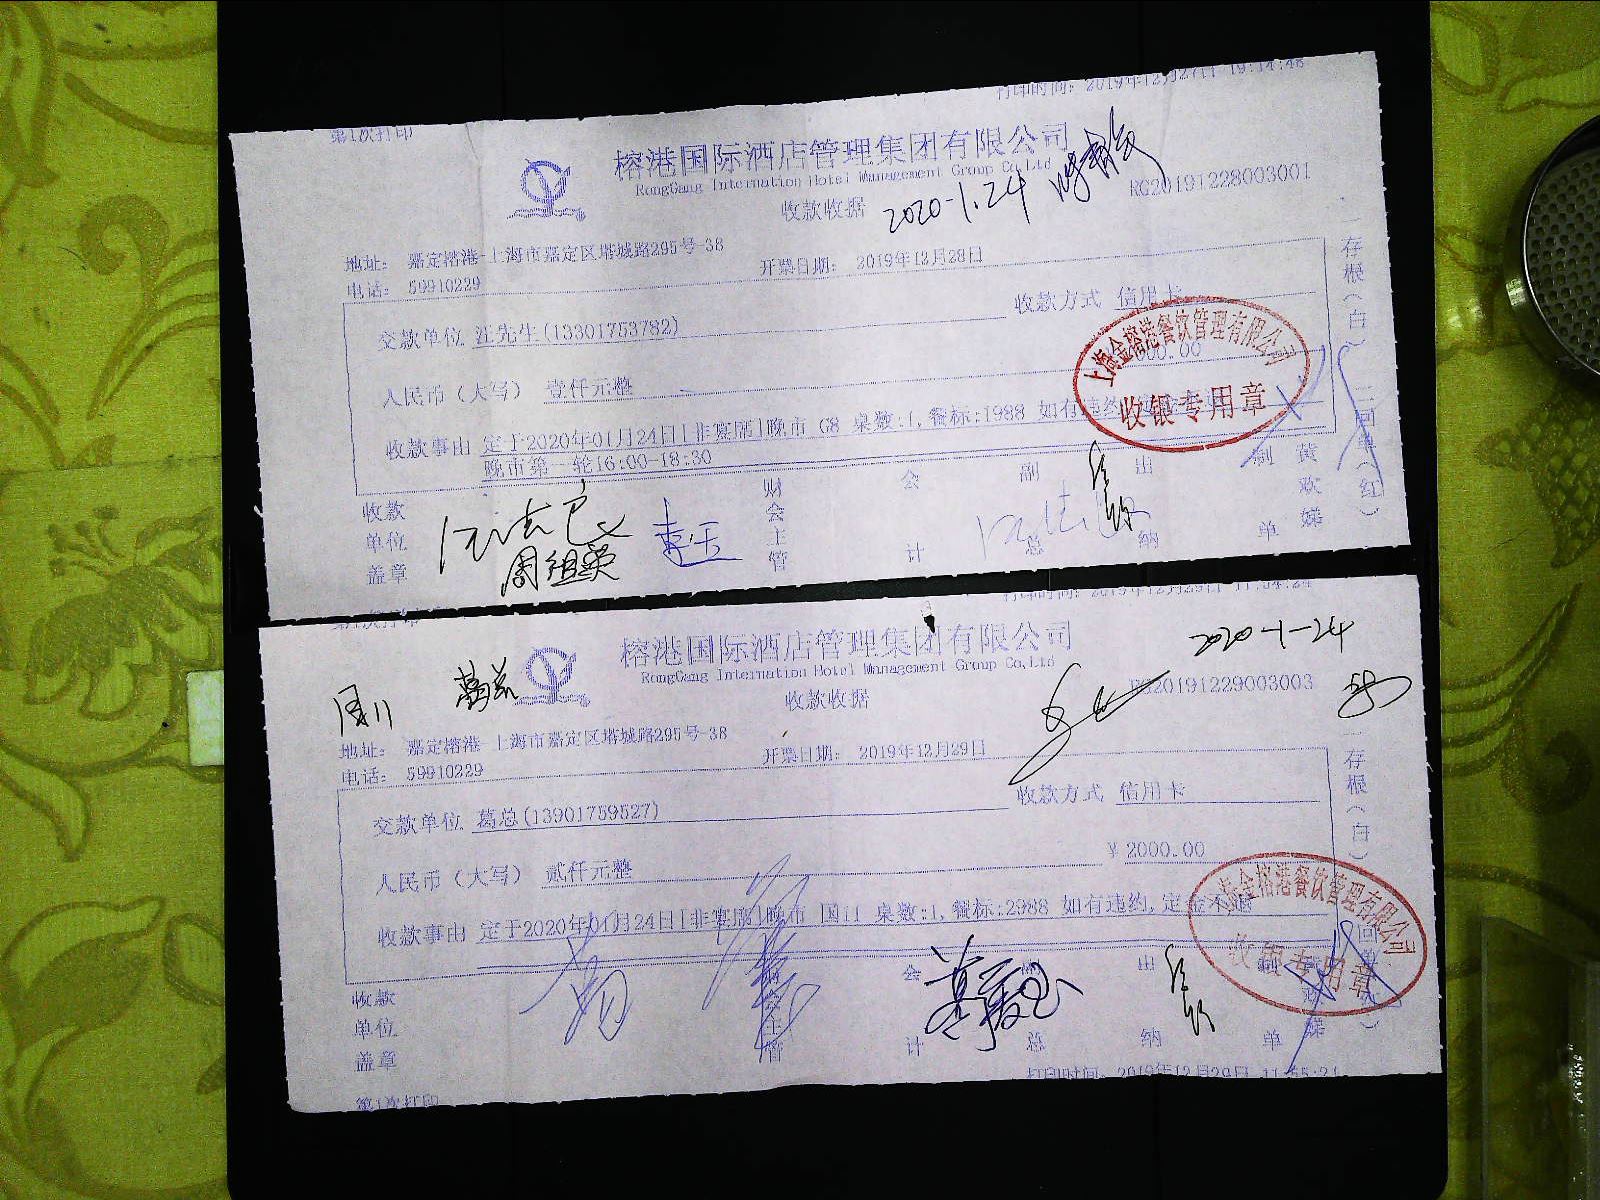 第1次打印
打印时间: 2019年12月27日 19:14:48
榕港国际酒店管理集团有限公司
RongGang Internation Hotel Management Group Co,Ltd
收款收据
2020-1.24
RG20191228003001
地址: 嘉定榕港 上海市嘉定区塔城路295号-38
电话: 59910229
开票日期: 2019年12月28日
交款单位 汪先生(13301753782)
收款方式 信用卡
人民币(大写) 壹仟元整
000.00
收款事由 定于2020年01月24日[非宴席]晚市 G8 桌数:1,餐标:1988 如有违约
晚市第一轮16:00-18:30
上海金榕港餐饮管理有限公司
收银专用章
收款单位盖章
周组英
财会主管
会计
副总
出纳
制单
黄欢娣
存根(白) 二回单(红)
打印时间: 2019年12月29日 11:54:24
榕港国际酒店管理集团有限公司
RongGang Internation Hotel Management Group Co,Ltd
收款收据
2020-1-24
RG20191229003003
国11
地址: 嘉定榕港 上海市嘉定区塔城路295号-38
电话: 59910229
开票日期: 2019年12月29日
交款单位 葛总(13901759527)
收款方式 信用卡
人民币(大写) 贰仟元整
¥ 2000.00
收款事由 定于2020年01月24日[非宴席]晚市 国11 桌数:1,餐标:2988 如有违约,定金不退
上海金榕港餐饮管理有限公司
收银专用章
收款单位盖章
会计
总
出纳
制单
存根(白)
打印时间: 2019年12月29日 11:55:21
第1次打印